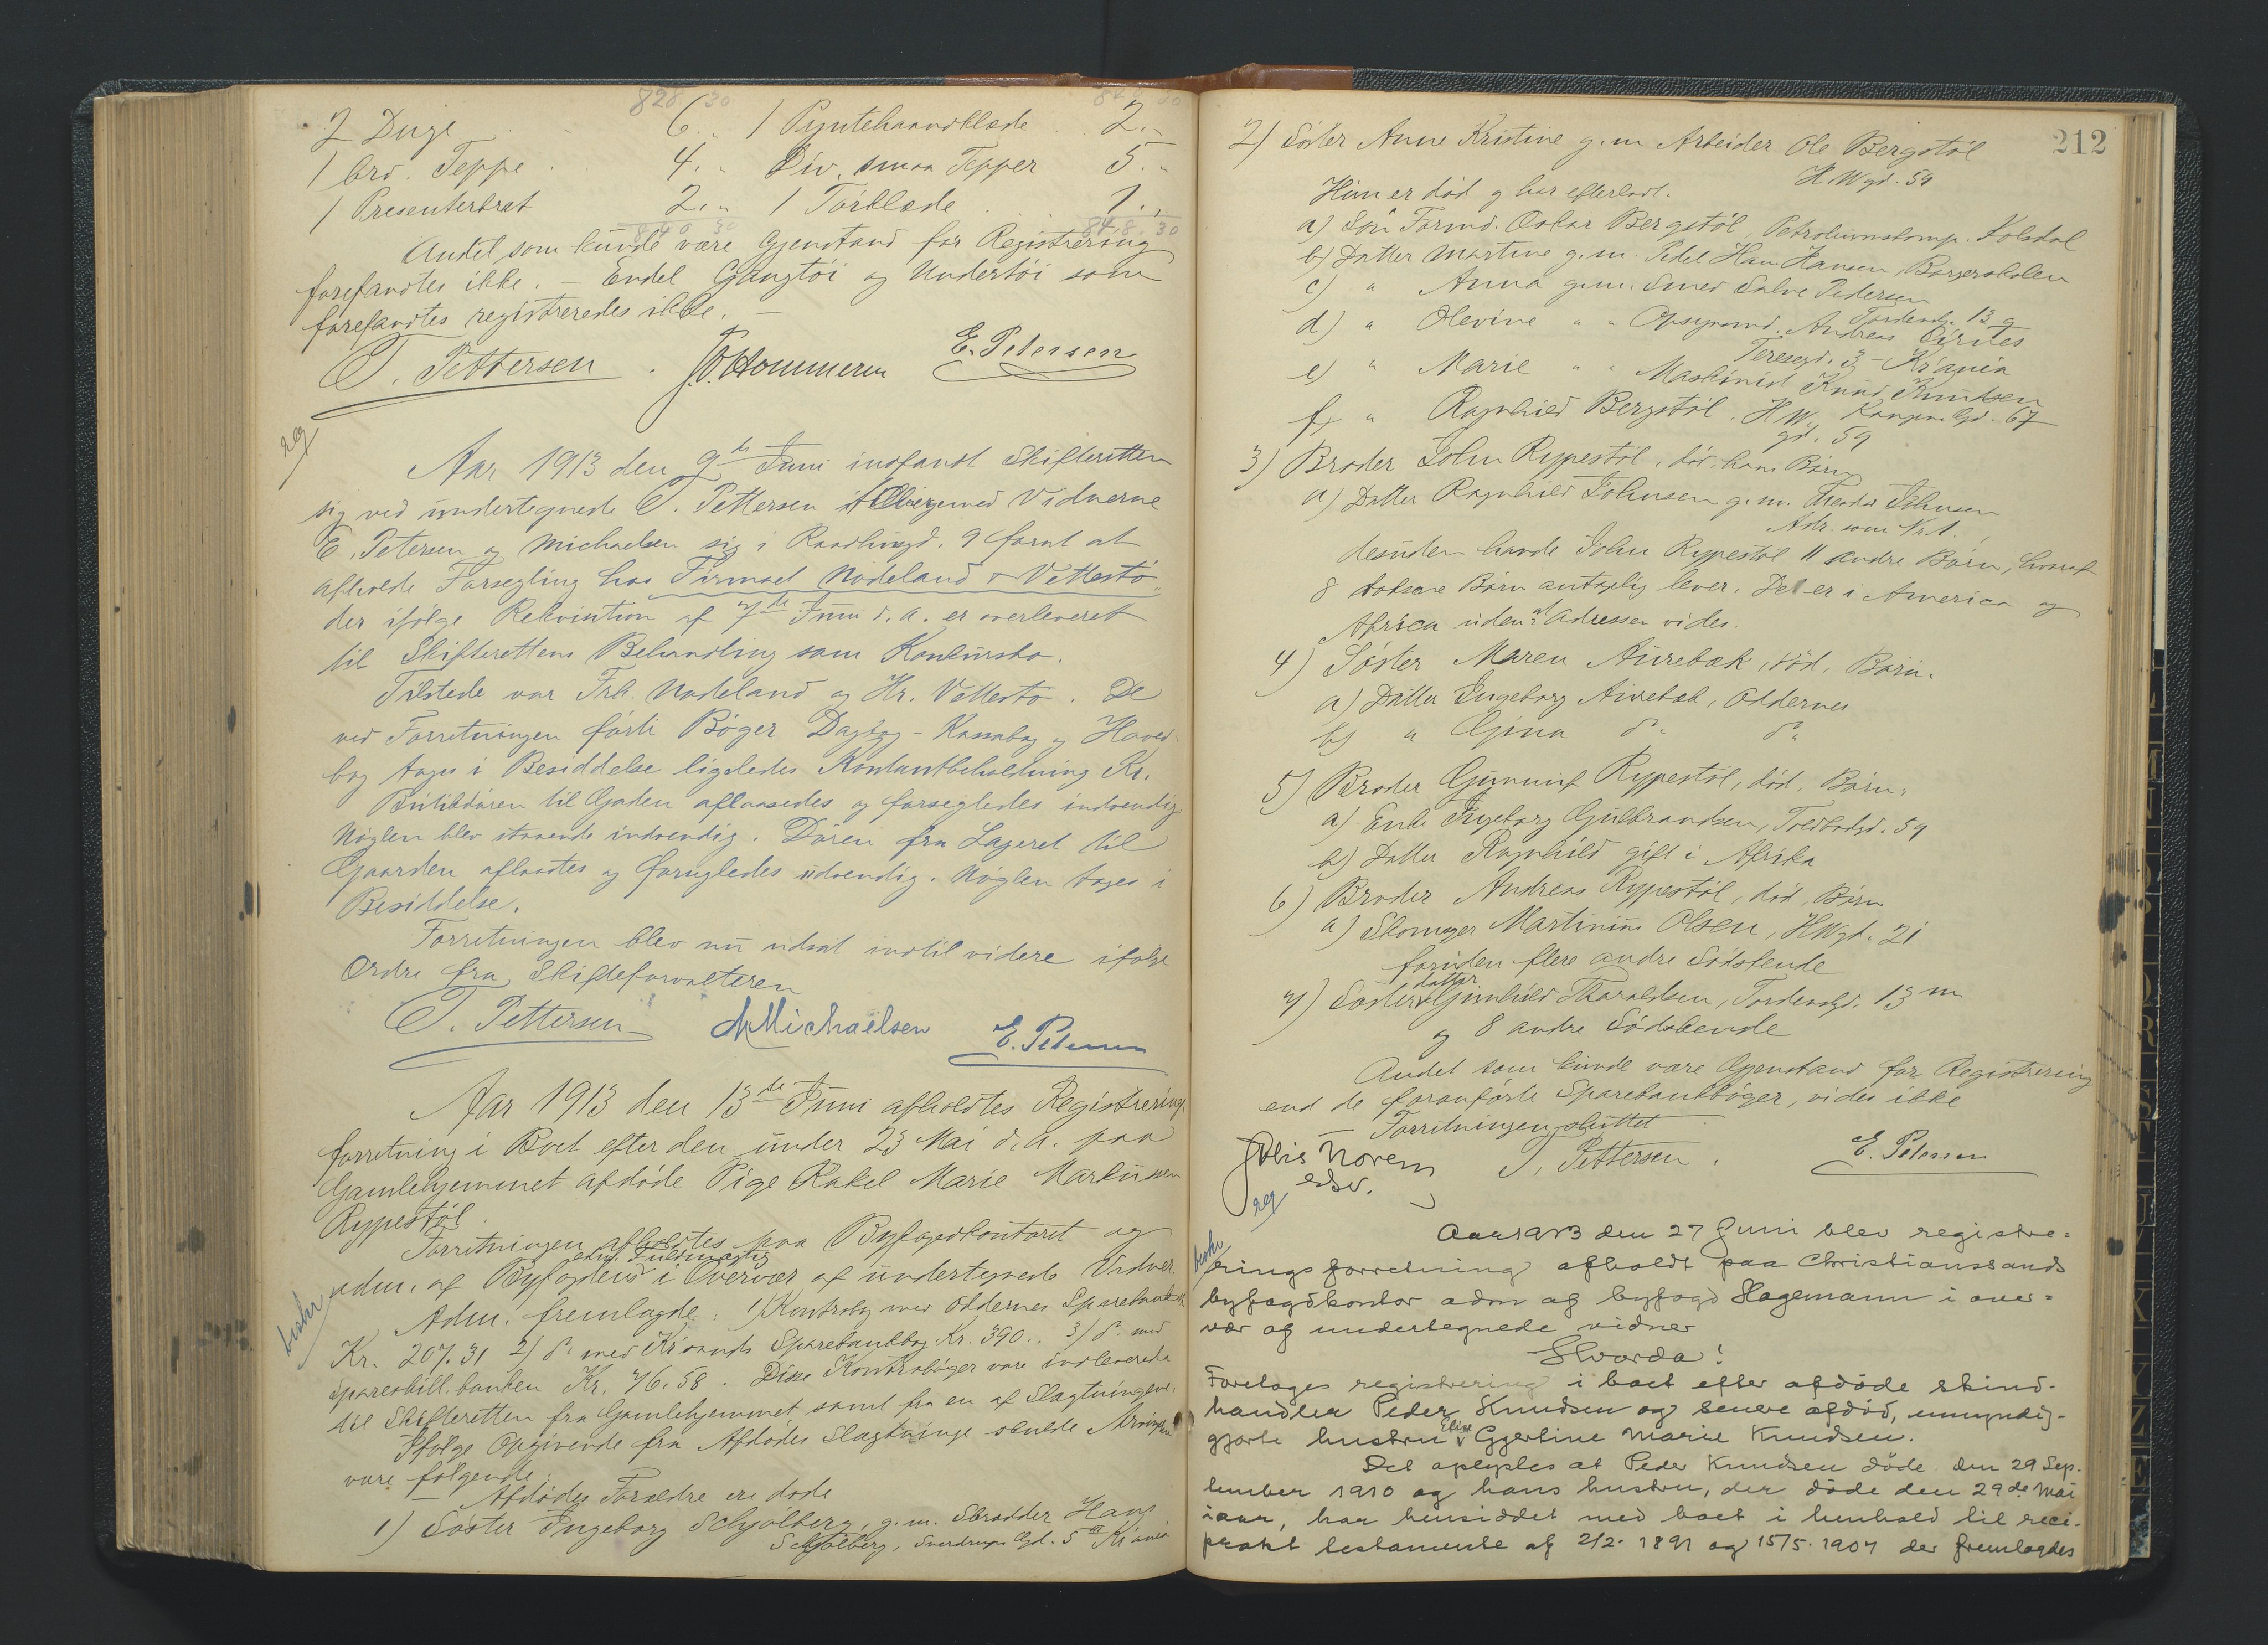 828 30
848 30
2 Duge 6.„ 1 Pyntehaandklæde 2.„
1 bro. Teppe 4.„ Div. smaa Tepper 5.„
1 Presenterbrat 2.„ 1 Törklæde 1.„
840 30 848.30
Andet som kunde være Gjenstand for Registrering
forefandtes ikke. – Endel Gangtöi og Undertöi som
forefandtes registreredes ikke. –
T. Pettersen. E. Petersen
reg
Aar 1913 den 9de Juni indfandt Skifteretten
sig ved undertegnede T. Pettersen med Vidnerne
E. Petersen og Michaelsen sig i Raadhusgd. 9 forat at
afholde Forsegling hos Firmaet Nodeland & Vettestö
der ifölge Rekvisition af 7de Juni d.a. er overleveret
til Skifterettens Behandling som Konkursbo.
Tilstede var Frk. Nodeland og Hr. Vettestö. De
ved Forretningen förte Böger Dagbog – Kassabog og Hoved-
bog toges i Besiddelse ligeledes Kontantbeholdning Kr.
Butikdören til Gaden aflaasedes og forsegledes indvendig
Nöglen blev staaende indvendig. Dören fra Lageret til
Gaarden aflaastes og forsegledes udvendig. Nöglen toges i
Besiddelse.
Forretningen blev nu udsat indtil videre ifölge
Ordre fra Skifteforvalteren
T. Pettersen Michaelsen E. Petersen
Aar 1913 den 13de Juni afholdtes Registrerings
forretning i Boet efter den under 23 Mai d.a. paa
Gamlehjemmet afdöde Pige Rakel Marie Markussen
Rypestöl.
Forretningen afholdtes paa Byfogedkontoret og
edsv. Fuldmægtig
adm. af Byfogdens i Overvær af undertegnede Vidner
beskr
Adm. fremlagde: 1) Kontrabog med Oddernes Sparebank
Kr. 207.31 2) do med Kr.sands Sparebankbog Kr. 390.. 3) do med
Spareskill. banken Kr. 76.58. Disse Kontrabøger vare indleverede
til Skifteretten fra Gamlehjemmet samt fra en af Slagtningene.
Ifölge Opgivende fra Afdödes Slagtninge skulde Arvingerne
være fölgende:
– Afdödes Forældre ere döde
1) Söster Ingeborg Schjölberg, g.m. Skrædder Hans
Schjölberg, Sverdrups Gd. 5 Kr.ania
212
2) Söster Anne Kristine g.m. Arbeider Ole Bergstöl
H.W.gd. 59
Hun er död og har efterladt.
a) Sön Formd. Oskar Bergstöl, Petroliumskomp. Kolsdal
b) Datter Martine g.m. Pedel Hans Hansen, Borgerskolen
c) " Anna g.m. Smed Salve Pedersen
Tordensk. 13 a
d) " Olevine " " Opsynsmd. Andreas Eirnes
Teresegd. 3 – Kr.ania
e) " Marie " " Maskinist Knud Knudsen
Kongens Gd. 67
f) " Ragnhild Bergstöl. H.W.
gd. 59
3) Broder John Rypestöl, död, hans Börn
a) Datter Ragnhild Johnsen g.m. Theodor Johnsen
Adr. som Nr. 1.
desuden havde John Rypestöl 11 andre Börn, hvoraf
8 voksne Börn antagelig lever. Del er i America og
Africa uden at Adressen vides.
4) Söster Maren Aurebæk, död. Börn:
a) Datter Ingeborg Aurebæk, Oddernes
b) " Gjina do do
5) Broder Gunnuf Rypestöl, död. Börn:
a) Enke Ingeborg Gulbrandsen, Toldbodgd. 59
b) Datter Ragnhild gift i Afrika
6) Broder Andreas Rypestöl, död, Börn
a) Skomager Martinius Olsen, H.W.gd. 21
foruden flere andre Södskende
datter
7) Söster Gunhild Tharaldsen, Tordenskgd. 13 m
og 8 andre Södskende
Andet som kunde være Gjenstand for Registrering
end de foranförte Sparebankböger, vides ikke
Forretningen sluttet
Norem T. Pettersen. E. Petersen
edsv.
reg
beskr
Aar 1913 den 27 Juni blev registre=
ringsforretning afholdt paa Christianssands
byfogdkontor adm af byfogd Hagemann i over=
vær af undertegnede vidner
Hvorda:
Foretoges registrering i boet efter afdöde skind-
handler Peder Knudsen og senere afdöd, umyndig-
gjorte hustru Elise Gjertine Marie Knudsen.
Det oplystes at Peder Knudsen döde den 29 Sep-
tember 1910 og hans hustru, der döde den 29de Mai
iaar, har hensiddet med boet i henhold til reci-
prokt testamente af 2/2. 1891 og 15/5. 1907 der fremlagdes